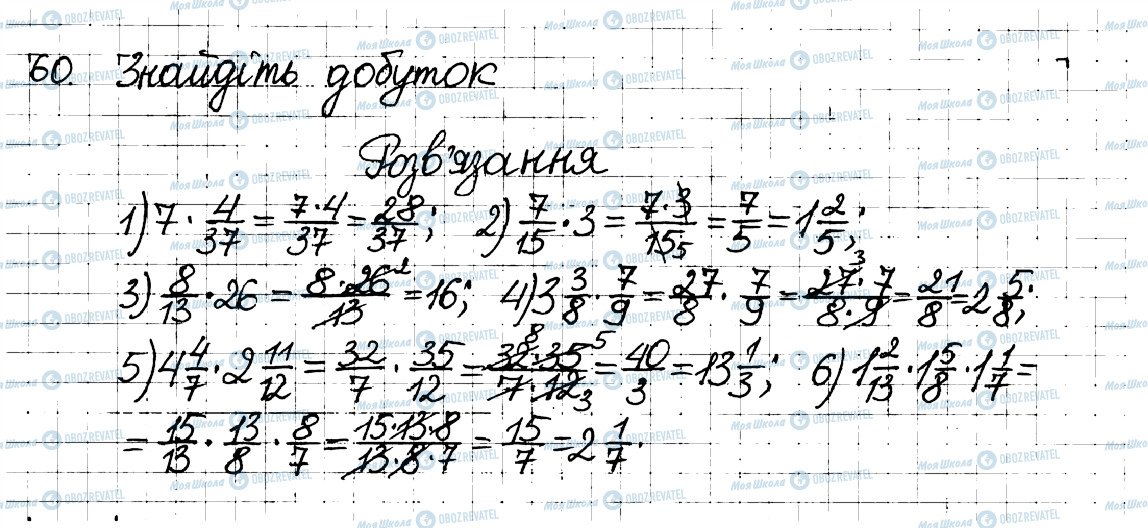 60. Знайдіть добуток
Розв'язання
1) 7 · 4/37 = 7·4/37 = 28/37; 2) 7/15 · 3 = 7·3/15 5 = 7/5 = 1 2/5;
3) 8/13 · 26 = 8·26 2/13 = 16; 4) 3 3/8 · 7/9 = 27/8 · 7/9 = 27 3·7/8·9 = 21/8 = 2 5/8;
5) 4 4/7 · 2 11/12 = 32/7 · 35/12 = 32 8·35 5/7·12 3 = 40/3 = 13 1/3; 6) 1 2/13 · 1 5/8 · 1 1/7 =
= 15/13 · 13/8 · 8/7 = 15·13·8/13·8·7 = 15/7 = 2 1/7.